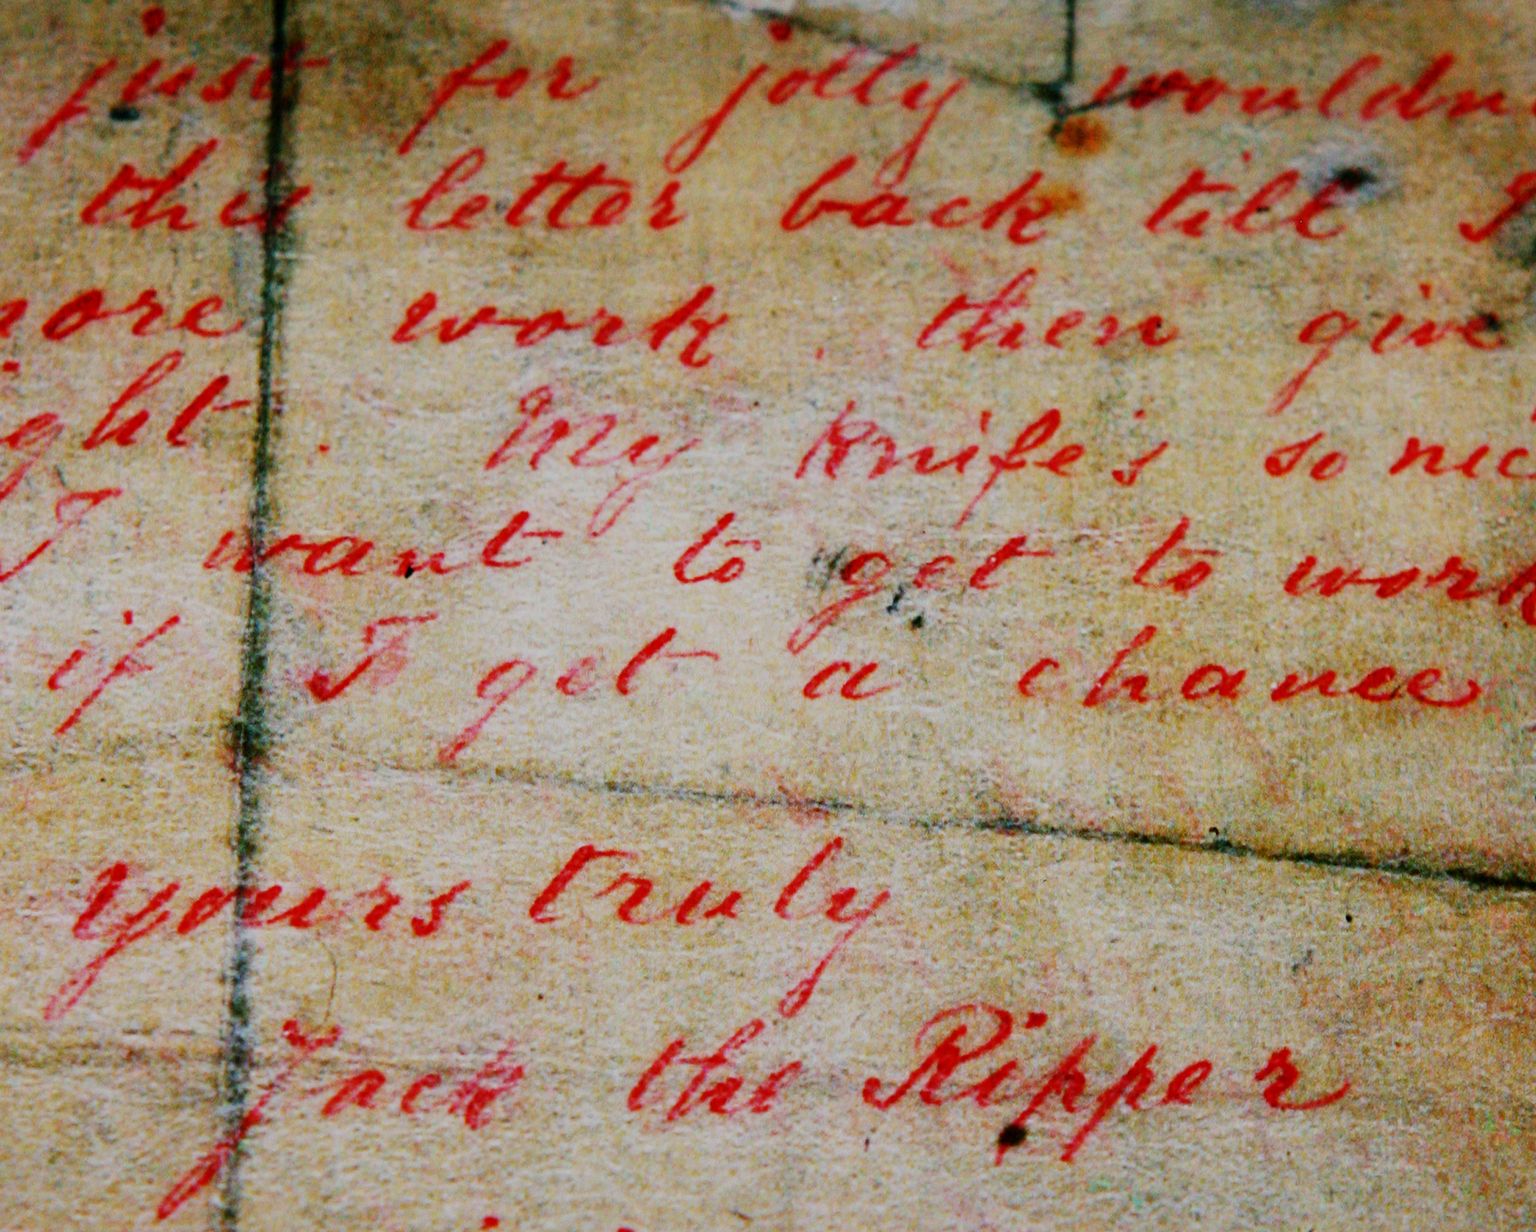 just for jolly wouldn
this letter back till I
more work. then give
ight. My knife's so nic
I want to get to work
if I get a chance
yours truly
Jack the Ripper